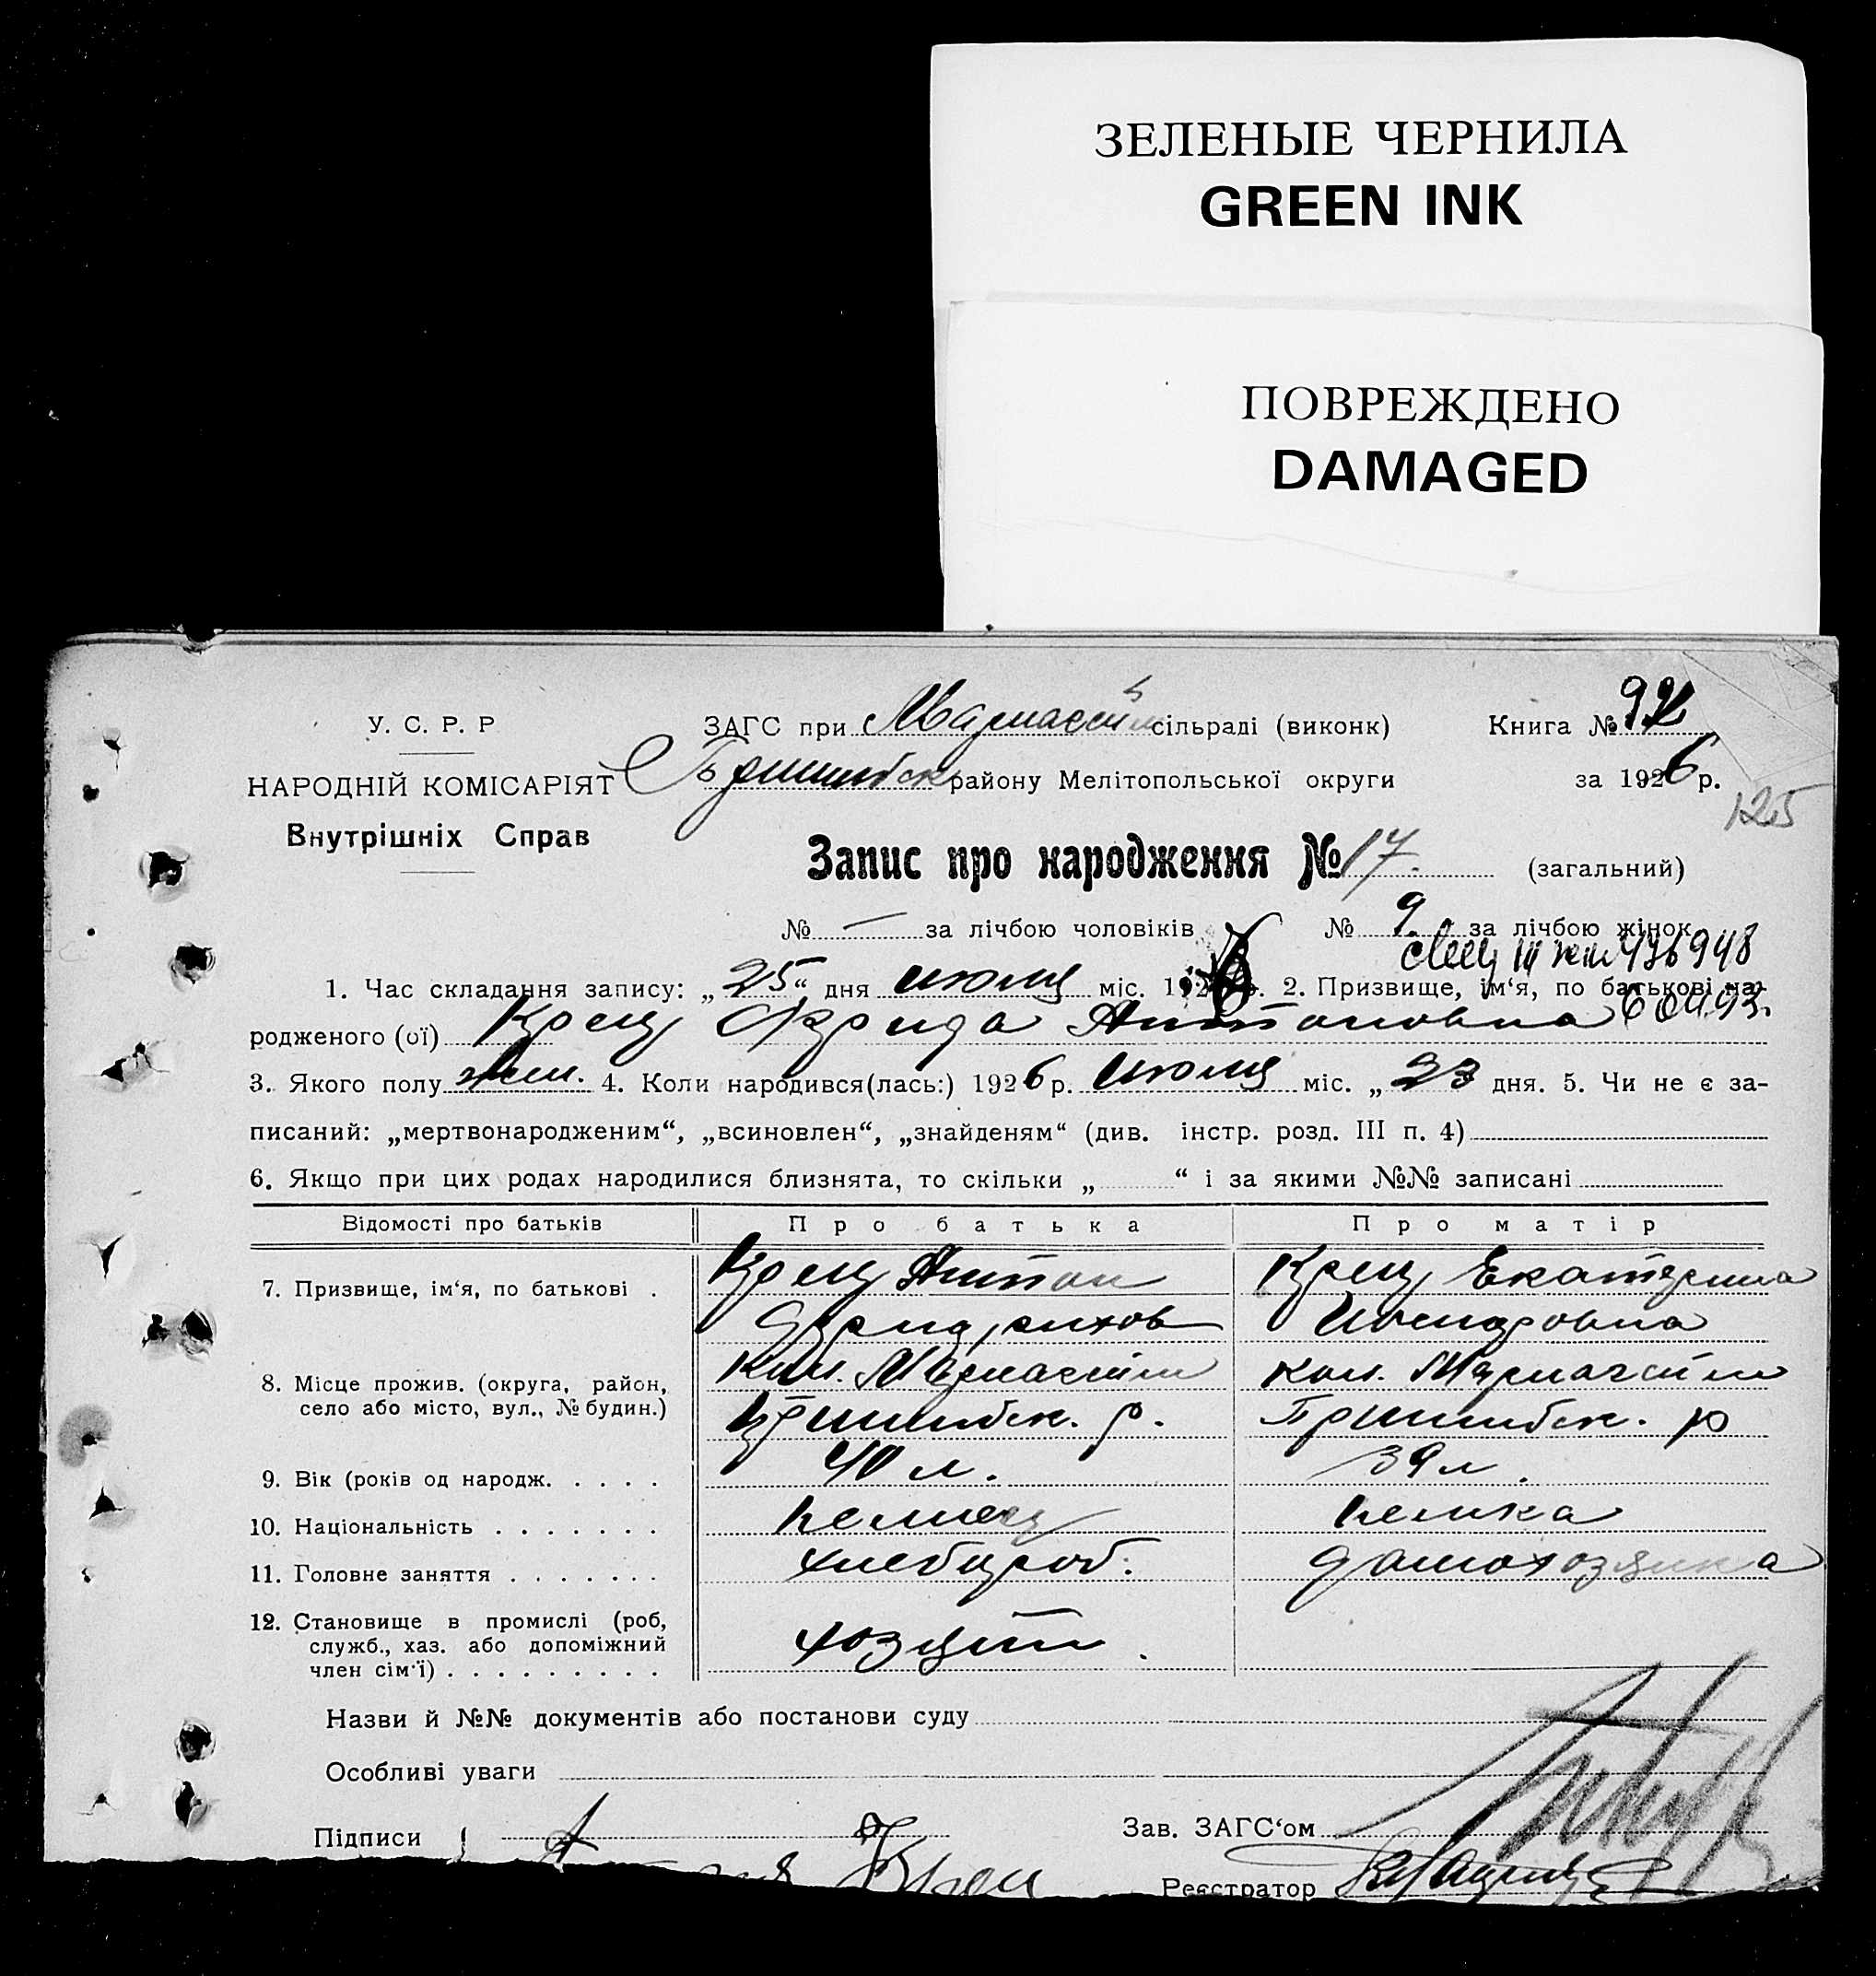 ЗЕЛЕНЫЕ ЧЕРНИЛА
GREEN INK
ПОВРЕЖДЕНО
DAMAGED
У. С. Р. Р
ЗАГС при сільраді (виконк) Книга №
НАРОДНІЙ КОМІСАРІЯТ Пришибск району Мелітопольської округи за 1926 р.
125
Внутрішніх Справ
Запис про народження № 17. (загальний)
№ — за лічбою чоловіків № 9. за лічбою жінок
1. Час складання запису: „25“ дня июля міс. 1926. 2. Призвище, ім‘я, по батькові на-
родженого (ої) Крец Фрида Антоновна
3. Якого полу жен. 4. Коли народився(лась:) 1926 р. июля міс. „23 дня. 5. Чи не є за-
писаний: „мертвонародженим“, „всиновлен“, „знайденям“ (див. інстр. розд. III п. 4)
6. Якщо при цих родах народилися близнята, то скільки „ “ і за якими №№ записані
Відомості про батьків Про батька Про матір
7. Призвище, ім‘я, по батькові . Крец Антон Крец Екатерина
Фридрихов
8. Місце прожив. (округа, район, кол. кол.
село або місто, вул., № будин.) Пришибск. р. Пришибск. р
9. Вік (років од народж. . . . . 40 л. 39 л.
10. Національність . . . . . . . немец немка
11. Головне заняття . . . . . . . хлебороб. домохозяйка
12. Становище в промислі (роб, хозяин.
служб., хаз. або допоміжний
член сім‘ї) . . . . . . . . .
Назви й №№ документів або постанови суду
Особливі уваги
Підписи Зав. ЗАГС‘ом
Реєстратор